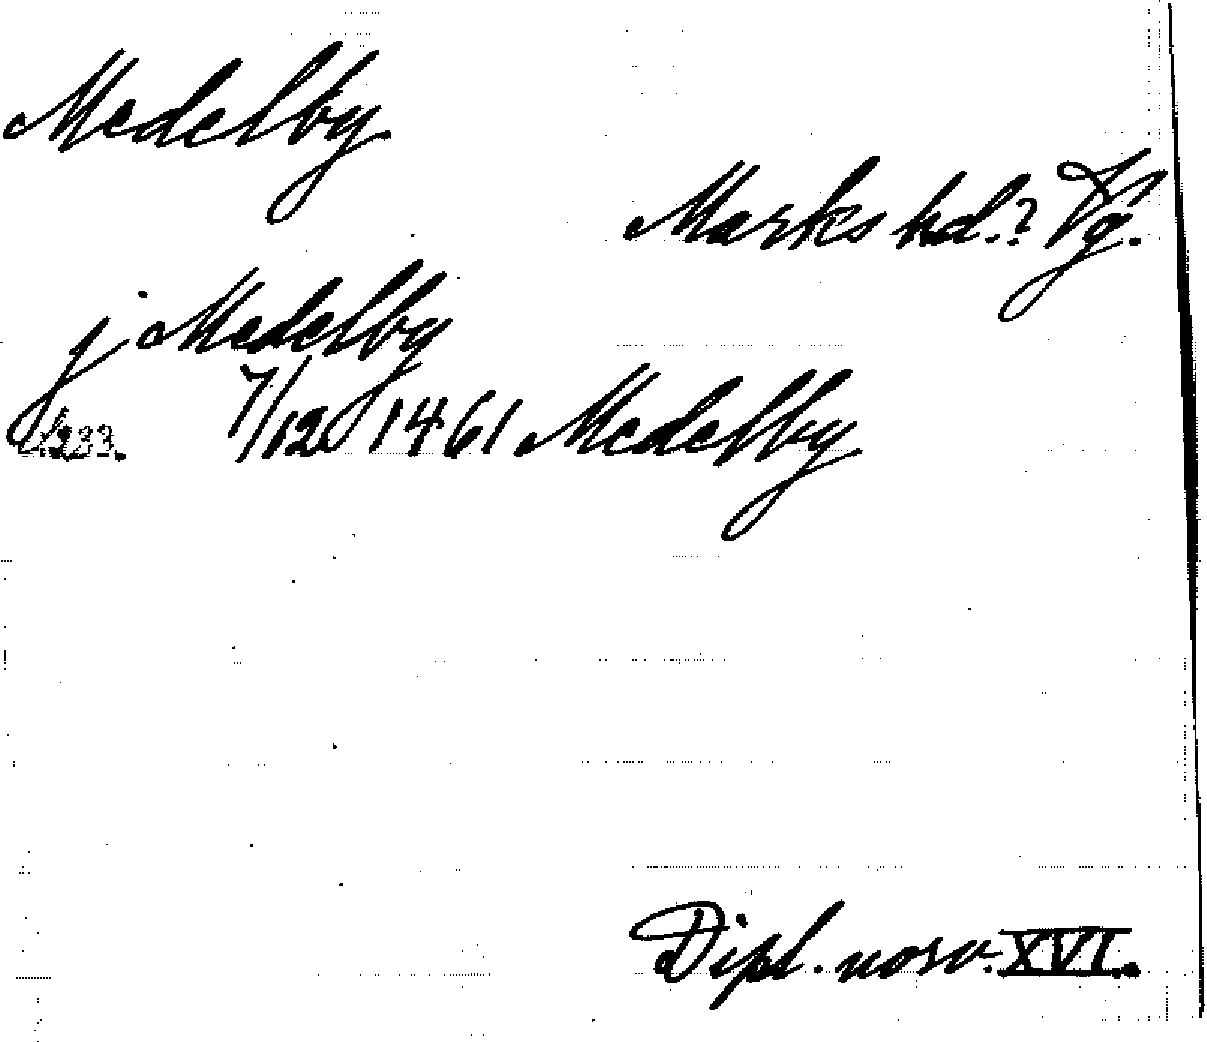 Medelby
Marks hd.? Vg.
j Medelby
7/12 1461 Medelby
233.
Dipl. norv. XVI.